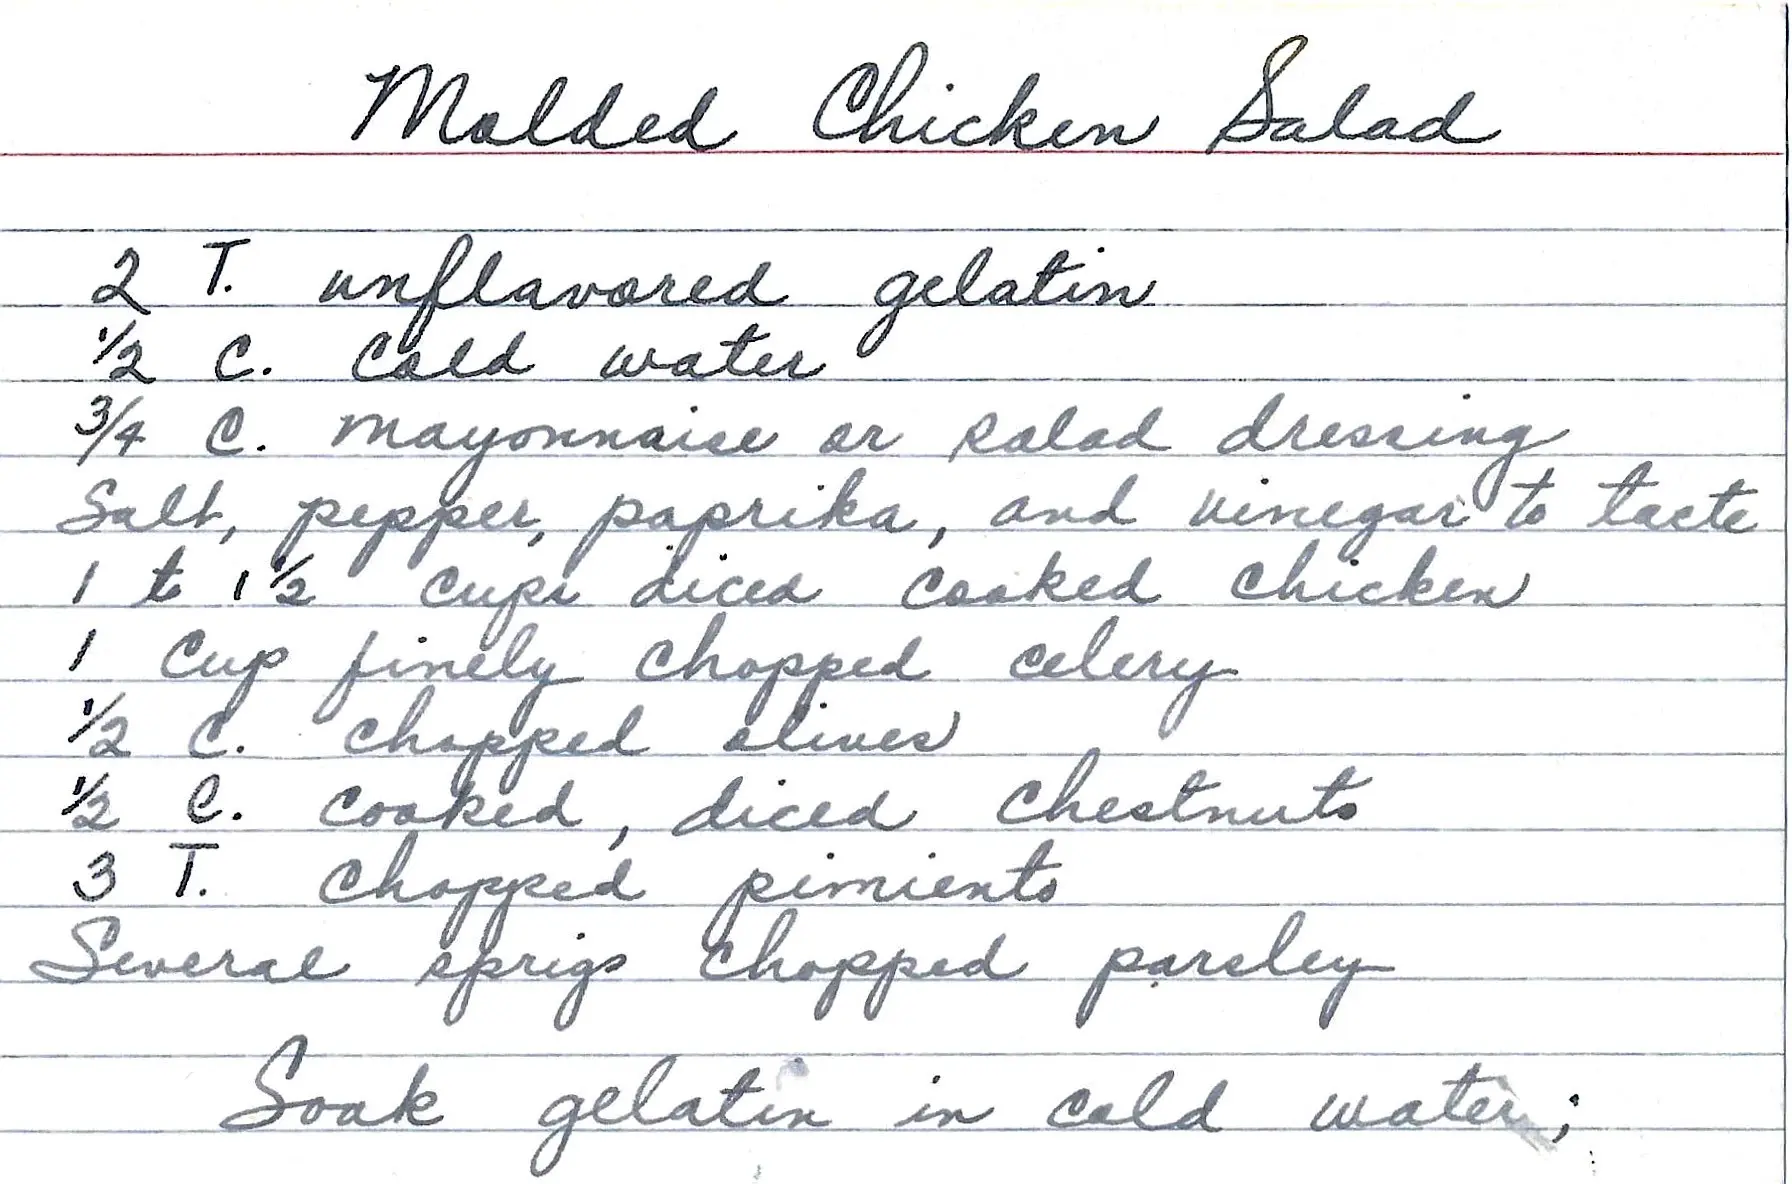 Molded Chicken Salad
2 T. unflavored gelatin
1/2 C. Cold water
3/4 C. mayonnaise or salad dressing
Salt, pepper, paprika, and vinegar to taste
1 to 1 1/2 cups diced cooked chicken
1 Cup finely chopped celery
1/2 C. chopped olives
1/2 C. cooked, diced chestnuts
3 T. chopped pimiento
Several sprigs chopped parsley
Soak gelatin in cold water;